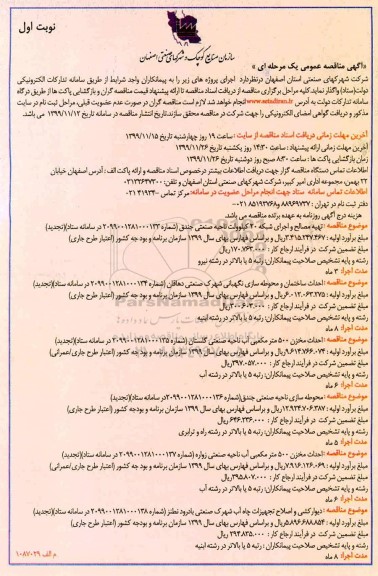 نوبت اول
سازمان صنایع کوچک و شهرکهای صنعتی اصفهان
«آگهی مناقصه عمومی یک مرحله ای»
شرکت شهرکهای صنعتی استان اصفهان درنظردارد اجرای پروژه های زیر را به پیمانکاران واجد شرایط از طریق سامانه تدارکات الکترونیکی
دولت(ستاد) واگذار نماید.کلیه مراحل برگزاری مناقصه از دریافت اسناد مناقصه تا ارائه پیشنهاد قیمت مناقصه گران و بازگشایی پاکت ها از طریق درگاه
سامانه تدارکات دولت به آدرس www.setadiran.ir انجام خواهد شد.لازم است مناقصه گران در صورت عدم عضویت قبلی، مراحل ثبت نام در سایت
مذکور و دریافت گواهی امضای الکترونیکی را جهت شرکت در مناقصه محقق سازند.تاریخ انتشار مناقصه در سامانه تاریخ ۱۳۹۹/۱۱/۱۲ می باشد.
آخرین مهلت زمانی دریافت اسناد مناقصه از سایت : ساعت ۱۹ روز چهارشنبه تاریخ ۱۳۹۹/۱۱/۱۵
آخرین مهلت زمانی ارائه پیشنهاد: ساعت ۱۴:۳۰ روز یکشنبه تاریخ ۱۳۹۹/۱۱/۲۶
زمان بازگشایی پاکت ها : ساعت ۸:۳۰ صبح روز دوشنبه تاریخ
اطلاعات تماس دستگاه مناقصه گزار جهت دریافت اطلاعات بیشتر درخصوص اسناد مناقصه و ارائه پاکت الف : آدرس اصفهان خیابان
۲۲ بهمن، مجموعه اداری امیر کبیر، شرکت شهرکهای صنعتی استان اصفهان و تلفن:
اطلاعات تماس سامانه ستاد جهت انجام مراحل عضویت در سامانه: مرکز تماس
دفتر ثبت نام در تهران: ۸۸۹۶۹۷۳۷ و ۸۵۱۹۳۷۶۸-۰۲۱
هزینه درج آگهی روزنامه به عهده برنده مناقصه می باشد.
موضوع مناقصه : تهیه مصالح و اجرای شبکه ۲۰ کیلوولت ناحیه صنعتی جندق (شماره ۲۰۹۹۰۰۱۲۸۱۰۰۰۱۳۲ در سامانه ستاد)(تجدید)
مبلغ برآورد اولیه : ۳.۴۱۵.۲۳۷.۴۶۷ریال و براساس فهارس بهای سال ۱۳۹۹ سازمان برنامه و بودجه کشور (اعتبار طرح جاری)
مبلغ تضمین شرکت در فرآیند ارجاع کار :
رشته و پایه تشخیص صلاحیت پیمانکاران: رتبه ۵ یا بالاتر در رشته نیرو
مدت اجرا: ۳ ماه
موضوع مناقصه : احداث ساختمان و محوطه سازی نگهبانی شهرک صنعتی دهاقان (شماره ۲۰۹۹۰۰۱۲۸۱۰۰۰۱۳۴ در سامانه ستاد)(تجدید)
مبلغ برآورد اولیه : ۶.۰۱۲.۰۶۳.۲۷۵ریال و براساس فهارس بهای سال ۱۳۹۹ سازمان برنامه و بودجه کشور (اعتبار طرح جاری)
مبلغ تضمین شرکت در فرآیند ارجاع کار :
رشته و پایه تشخیص صلاحیت پیمانکاران: رتبه ۵ یا بالاتر در رشته ابنیه
مدت اجرا: ۸ ماه
موضوع مناقصه : احداث مخزن ۵۰۰ متر مکعبی آب ناحیه صنعتی گلستان (شماره ۲۰۹۹۰۰۱۲۸۱۰۰۰۱۳۵ در سامانه ستاد)(تجدید)
مبلغ برآورد اولیه : ۹.۶۱۴.۷۶۶.۰۷۳ریال و براساس فهارس بهای سال ۱۳۹۹ سازمان برنامه و بودجه کشور (اعتبار طرح جاری/عمرانی)
مبلغ تضمین شرکت در فرآیند ارجاع کار :
رشته و پایه تشخیص صلاحیت پیمانکاران: رتبه ۵ یا بالاتر در رشته آب
مدت اجرا: ۶ ماه
موضوع مناقصه : محوطه سازی ناحیه صنعتی جندق(شماره ۲۰۹۹۰۰۱۲۸۱۰۰۰۱۳۶در سامانه ستاد)(تجدید)
مبلغ برآورد اولیه : ۱۲.۹۲۴.۷۰۶.۳۸۷ریال و براساس فهارس بهای سال ۱۳۹۹ سازمان برنامه و بودجه کشور (اعتبار طرح جاری)
مبلغ تضمین شرکت در فرآیند ارجاع کار : ۶۴۶.۲۳۶.۰۰۰ ریال
رشته و پایه تشخیص صلاحیت پیمانکاران: رتبه ۵ یا بالاتر در رشته راه و ترابری
مدت اجرا: ۵ ماه
موضوع مناقصه : احداث مخزن ۵۰۰ متر مکعبی آب ناحیه صنعتی زواره (شماره ۲۰۹۹۰۰۱۲۸۱۰۰۰۱۳۷ در سامانه ستاد)(تجدید)
مبلغ برآورد اولیه : ۷.۹۱۶.۱۲۶.۰۶۹ریال و براساس فهارس بهای سال ۱۳۹۹ سازمان برنامه و بودجه کشور (اعتبار طرح جاری/عمرانی)
مبلغ تضمین شرکت در فرآیند ارجاع کار : ۳۹۵.۸۰۷.۰۰۰ریال
رشته و پایه تشخیص صلاحیت پیمانکاران: رتبه ۵ یا بالاتر در رشته آب
مدت اجرا: ۶ ماه
موضوع مناقصه : دیوارکشی و اصلاح تجهیزات چاه آب شهرک صنعتی بادرود نطنز (شماره ۲۰۹۹۰۰۱۲۸۱۰۰۰۱۳۸ در سامانه ستاد)(تجدید)
مبلغ برآورد اولیه : ۵.۸۹۶.۶۸۸.۸۵۴ریال و براساس فهارس بهای سال ۱۳۹۹ سازمان برنامه و بودجه کشور (اعتبار طرح جاری)
مبلغ تضمین شرکت در فرآیند ارجاع کار : ۲۹۴.۸۳۵.۰۰۰ ریال
رشته و پایه تشخیص صلاحیت پیمانکاران: رتبه ۵ یا بالاتر در رشته ابنیه
مدت اجرا: ۸ ماه
م الف ۱۰۸۷۰۲۹